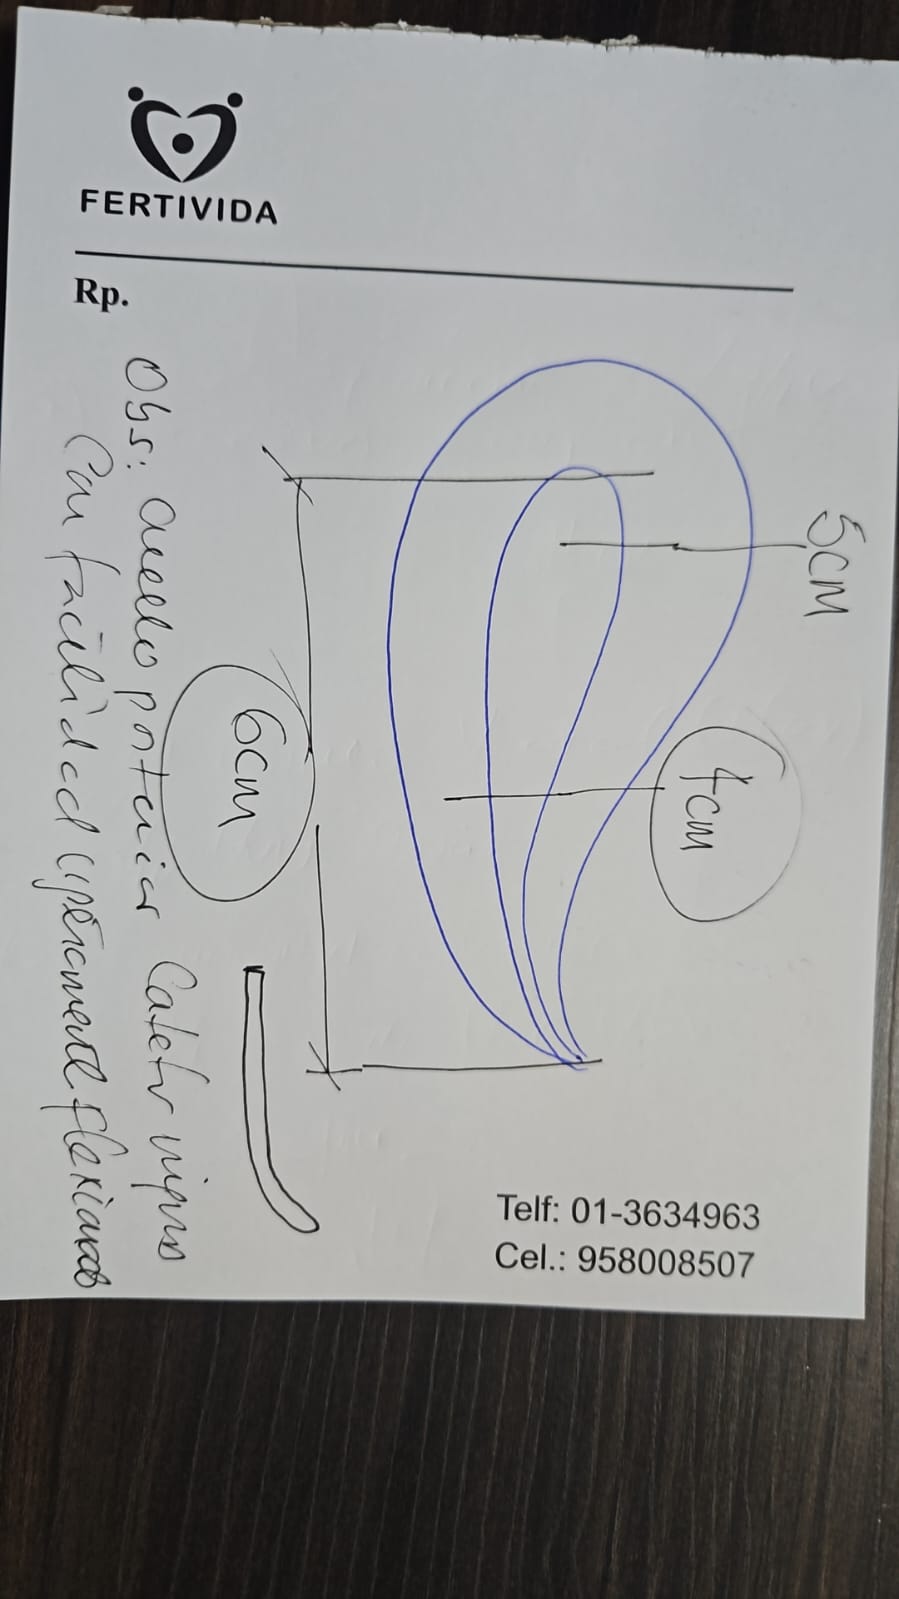 FERTIVIDA
Rp.
5cm
4cm
6cm
Obs: cuello posterior Cateter ingreso
Con facilidad ligeramente flexionado
Telf: 01-3634963
Cel.: 958008507